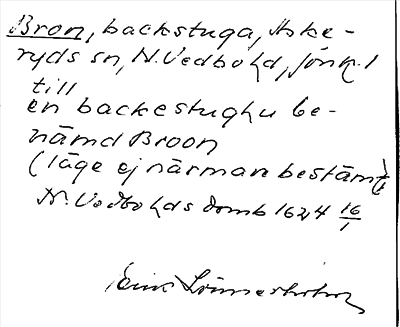 Bron, backstuga, Aske-
ryds sn, N. Vedbo hd, Jönk. l
till
en backestughu be-
nämd Broon
(läge ej närmare bestämt)
N. Vedbo hds domb 1624 16/1